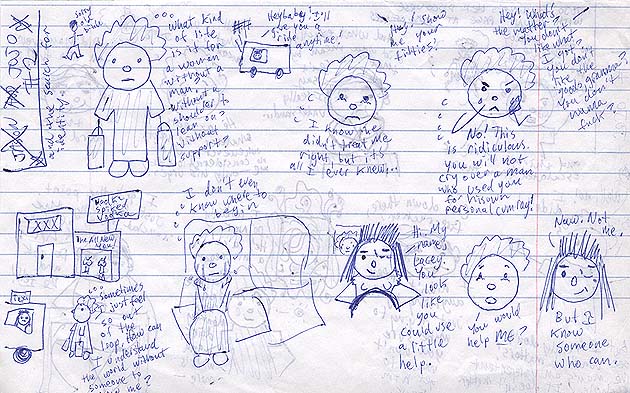 JASON AND JOJO
#2
and the search for
identity.
What kind
of life
is it for
a woman
without a
man.
without a
shoulder to
lean on?
without
support?
Hey baby! I'll
give you a
ride
anytime!
Hey! show
me your
titties!
I know he
didn't treat me
right but it's
all I ever knew...
Hey! What's
the matter?
You don't
like what
I got?
You don't
like the
goods gramma?
You don't
wanna
fuck?
No! This
is ridiculous.
you will not
cry over a man
who used you
for his own
personal cumray!
XXX
Spiced
The All New
Man.
TAXI
Sometimes
I just feel
so out
of the
loop. How can
I understand
the world without
someone to
me?
I don't even
know where to
begin
Hi. My
name's
Lacey.
You
look
like
you
could use
a little
help.
You would
help ME?
Naw. Not
me.
But I
know
someone
who can.